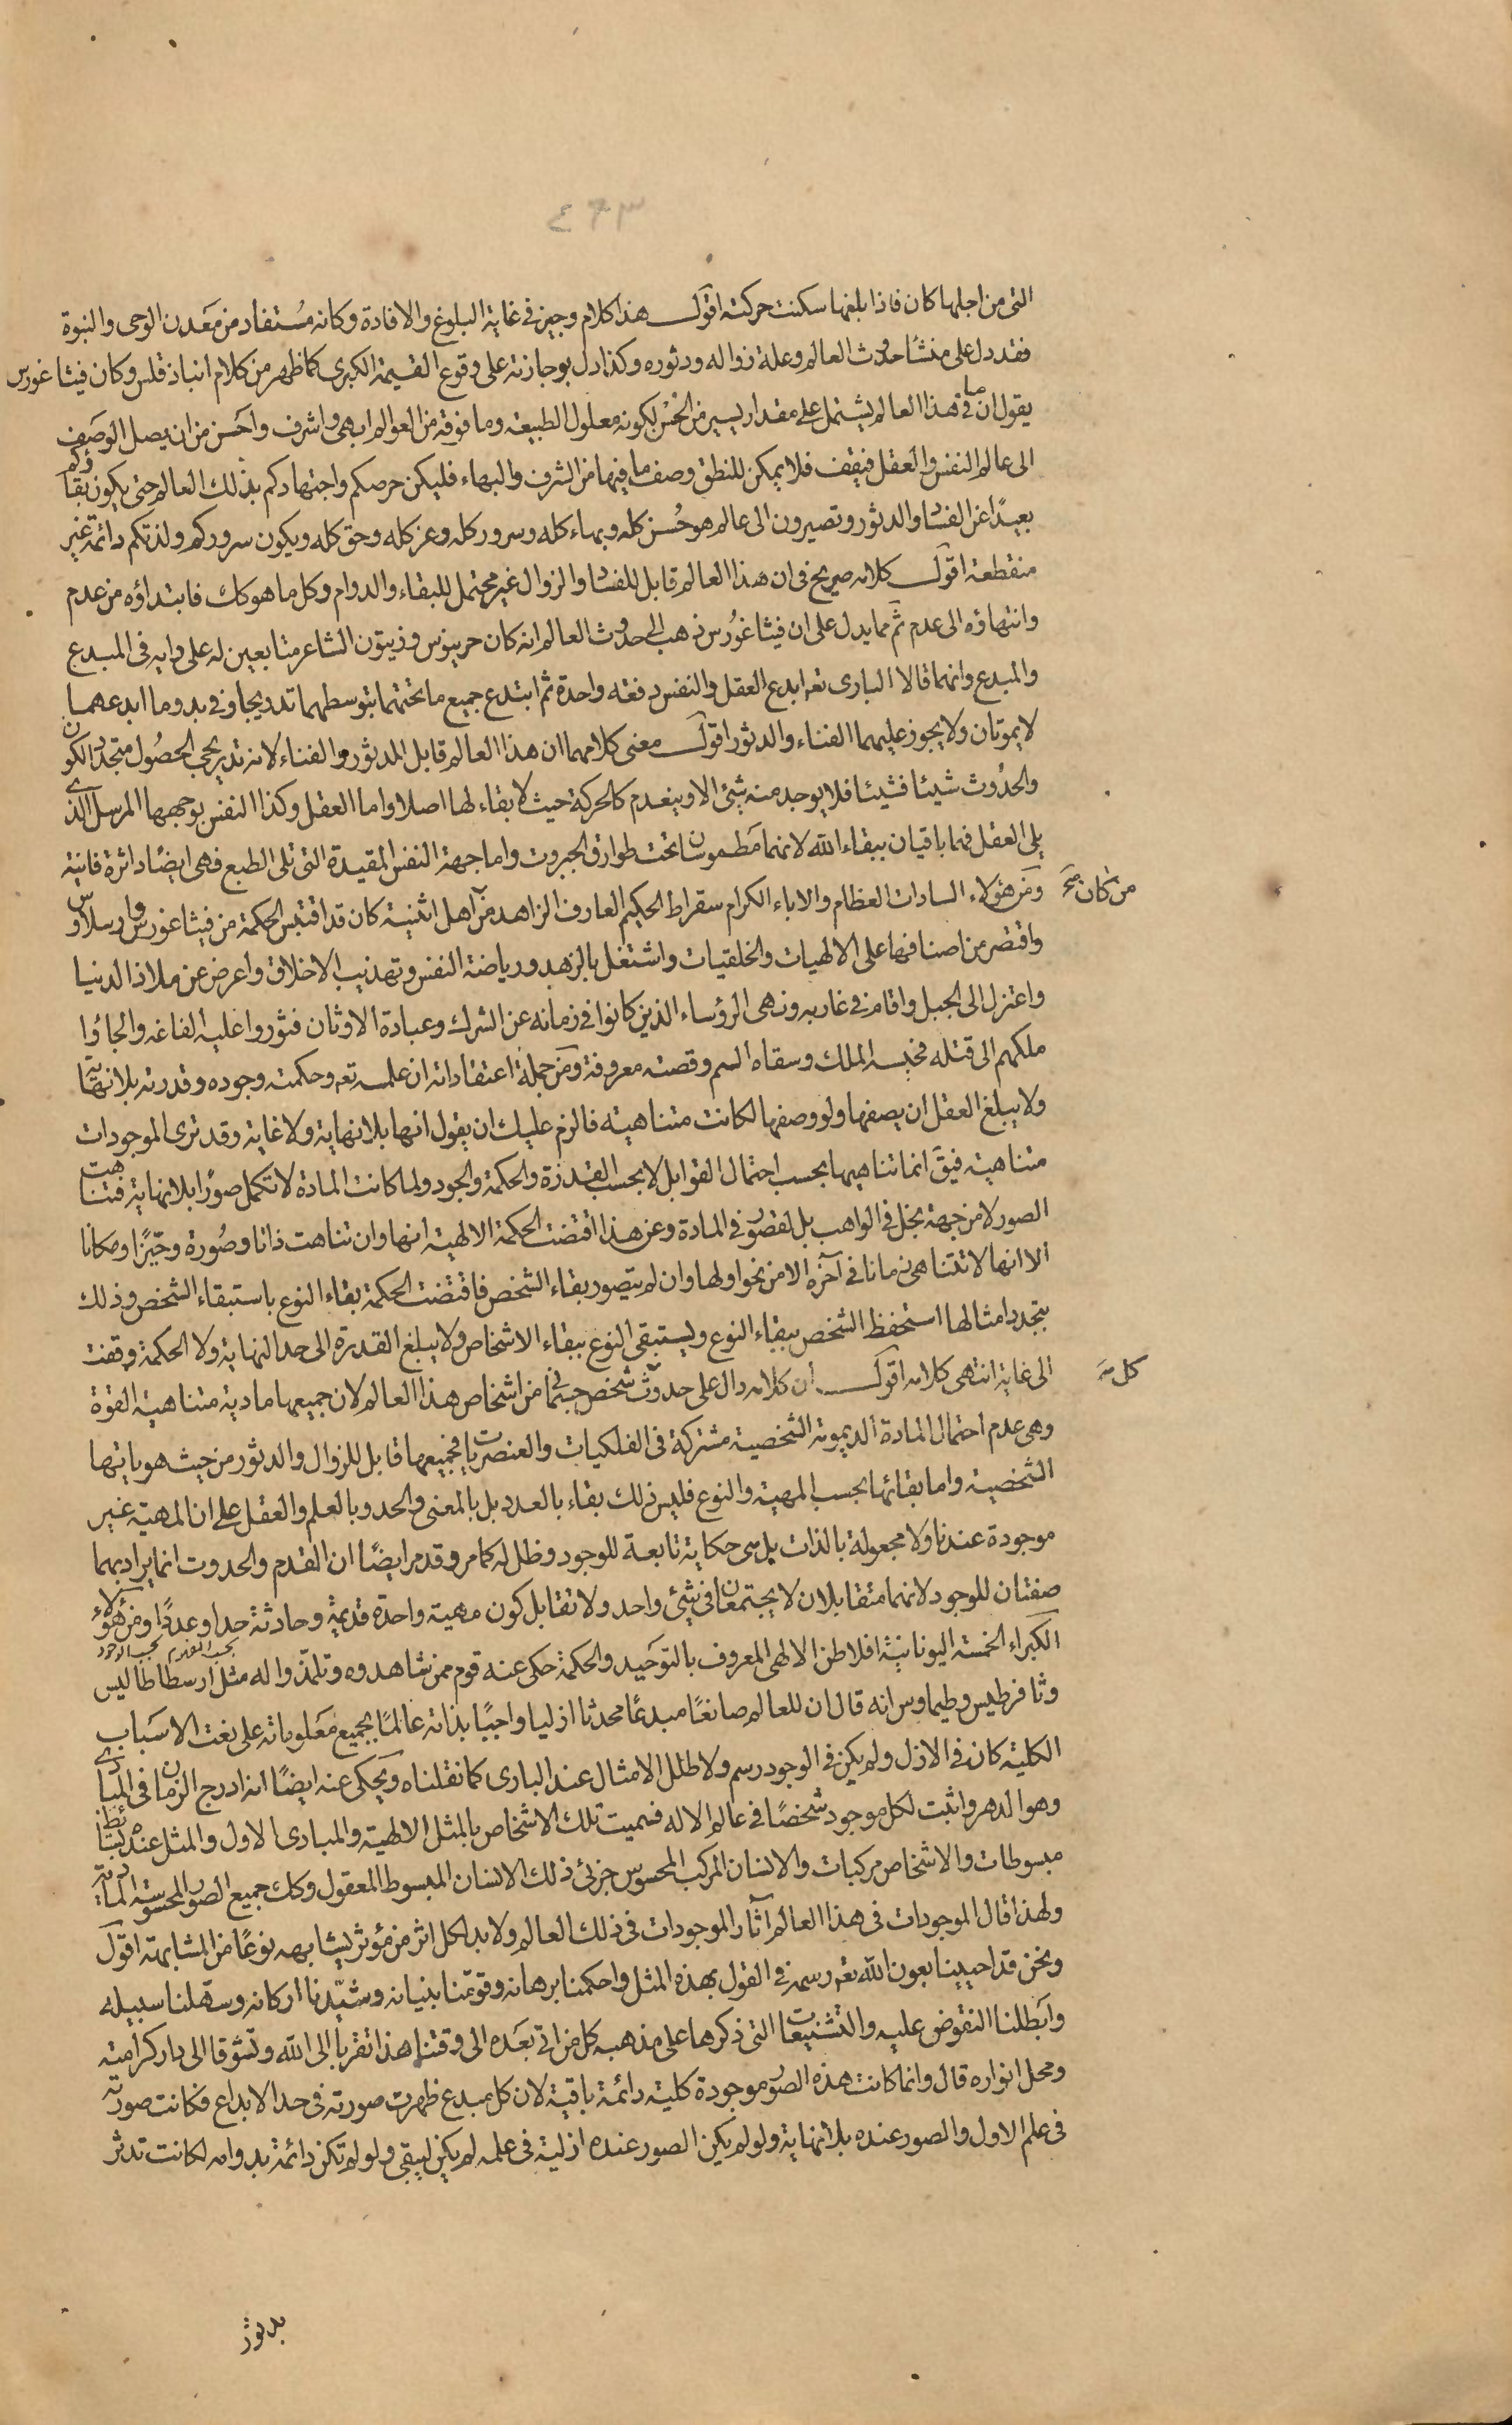 ٤٢٣
التى من اجلها كان فاذا بلغها سكنت حركته اقول هذا كلام وجيز فى غاية البلوغ والافادة وكانه مستفاد من معدن الوحى والنبوة
فقد دل على منشأ حدوث العالم وعلة زواله ودثوره وكذا دل بوجازته على وقوع القيمة الكبرى كما ظهر من كلام انباذقلس وكان فيثاغورس
يقول ان ما فى هذا العالم يشتمل على مقدار يسير من الحسن لكونه معلول الطبيعة وما فوقه من العوالم ابهى واشرف واحسن من ان يصل الوصف
الى عالم النفس والعقل فيقف فلا يمكن للنطق وصف ما فيها من الشرف والبهاء فليكن حرصكم واجتهادكم بذلك العالم حتى يكون بقاؤكم
بعيدًا عن الفساد والدثور وتصيرون الى عالم هو حُسن كله وبهاء كله وسرور كله وعز كله وحق كله ويكون سروركم ولذتكم دائمة غير
منقطعة اقول كلامه صريح فى ان هذا العالم قابل للفساد والزوال غير محتمل للبقاء والدوام وكل ما هو كك فابتداؤه من عدم
وانتهاؤه الى عدم ثم مما يدل على ان فيثاغورس ذهب الى حدوث العالم انه كان حرينوس وزيتون الشاعر متابعين له على رايه فى المبدع
والمبدع وانهما قالا البارى تعه ابدع العقل والنفس دفعه واحدة ثم ابتدع جميع ما تحتهما بتوسطهما تدريجا وفى بدو ما ابدعهما
لا يموتان ولا يجوز عليهما الفناء والدثور اقول معنى كلامهما ان هذا العالم قابل للدثور والفناء لانه تدريجى الحصول متجدد الكون
والحدُوث شيئا فشيئا فلا يوجد منه شئ الا وينعدم كالحركة حيث لا بقاء لها اصلا واما العقل وكذا النفس بوجهها المرسل الذى
يلى العقل فهما باقيان ببقاء الله لانهما مطموسان تحت طوارق الجبروت واما جهة النفس المقيدة التى تلى الطبع فهى ايضًا داثرة فانية
ومن هؤلاء السادات العظام والاباء الكرام سقراط الحكيم العارف الزاهد من اهل اثنية كان قد اقتبس الحكمة من فيثاغورس وارسلاوس
من كان صح
واقتصر من اصنافها على الالهيات والخلقيات واشتغل بالزهد ورياضة النفس وتهذيب الاخلاق واعرض عن ملاذ الدنيا
واعتزل الى الجبل واقام فى غار به ونهى الرؤساء الذين كانوا فى زمانه عن الشرك وعبادة الاوثان فثوروا عليه الغاغه والجاؤا
ملكهم الى قتله فحبسه الملك وسقاه السم وقصته معروفة ومن جملة اعتقاداته ان علمه تعه وحكمته وجوده وقدرته بلا نهاية
ولا يبلغ العقل ان يصفها ولو وصفها لكانت متناهيته فالزم عليك ان يقول انها بلا نهاية ولا غاية وقد ترى الموجودات
متناهية فيق انما تناهيها بحسب احتمال القوابل لا بحسب القدرة والحكمة والجود ولما كانت المادة لا تكمل صورًا بلا نهاية فتناهت
الصور لا من جهة بخل فى الواهب بل لقصور فى المادة وعن هذا اقتضت الحكمة الالهية انها وان تناهت ذاتا وصُورة وحيّزًا ومكانا
الا انها لا تتناهى زمانا فى آخره الا من نحو اولها وان لم يتصور بقاء الشخص فاقتضت الحكمة بقاء النوع باستبقاء الشخص وذلك
بتجدد امثالها استحفظ الشخص ببقاء النوع ويستبقى النوع ببقاء الاشخاص ولا يبلغ القدرة الى حد النهاية ولا الحكمة وقفت
الى غاية انتهى كلامه اقول ان كلامه دال على حدوث شخص جسمانى من اشخاص هذا العالم لان جميعها مادية متناهية القوة
كل
وهى عدم احتمال المادة الديمومة الشخصية مشتركة فى الفلكيات والعنصريات فجميعها قابل للزوال والدثور من حيث هوياتها
الشخصية واما بقائها بحسب المهية والنوع فليس ذلك بقاء بالعدد بل بالمعنى والحد وبالعلم والعقل على ان المهية غير
موجودة عندنا ولا مجعولة بالذات بل هى حكاية تابعة للوجود وظل له كما مر وقد مر ايضًا ان القدم والحدوث انما يراد بهما
صفتان للوجود لانهما متقابلان لا يجتمعان فى شئ واحد ولا تقابل كون مهية واحدة قديمة وحادثة حدا وعددًا ومن هؤلاء
بحسب التقدم بحسب الوجود
الكبراء الخمسة اليونانية افلاطن الالهى المعروف بالتوحيد والحكمة حكى عنه قوم ممن شاهدوه وتلمّذوا له مثل ارسطاطاليس
وثافرطيس وطيماوس انه قال ان للعالم صانعًا مبدعًا محدثا ازليا واجبًا بذاته عالمًا بجميع معلوماته على نعت الاسباب
الكلية كان فى الازل ولم يكن فى الوجود رسم ولا طلل الا مثال عند البارى كما نقلناه ويحكى عنه ايضًا انه ادرج الزمان فى المبادى
وهو الدهر واثبت لكل موجود شخصًا فى عالم الاله فسميت تلك الاشخاص بالمثل الالهية والمبادى الاول والمثل عنده بسائط
مبسوطات والاشخاص مركبات والانسان المركب المحسوس جزئى ذلك الانسان المبسوط المعقول وكك جميع الصور المحسوسة المادية
ولهذا قال الموجودات فى هذا العالم آثار الموجودات فى ذلك العالم ولا بد لكل اثر من مؤثر يشابهه نوعًا من المشابهة اقول
ونحن قد احيينا بعون الله تعه رسمه فى القول بهذه المثل واحكمنا برهانه وقومنا بنيانه وشيّدنا اركانه وسهّلنا سبيله
وابطلنا النقوض عليه والتشنيعات التى ذكرها على مذهبه كل من اتى بعده الى وقتنا هذا تقربا الى الله وتشوقا الى دار كرامته
ومحل انواره قال وانما كانت هذه الصور موجودة كلية دائمة باقية لان كل مبدع ظهرت صورته فى حد الابداع فكانت صورته
فى علم الاول والصور عنده بلا نهاية ولو لم يكن الصور عنده ازلية فى علمه لم يكن ليبقى ولو لم تكن دائمة بدوامه لكانت تدثر
بدثور